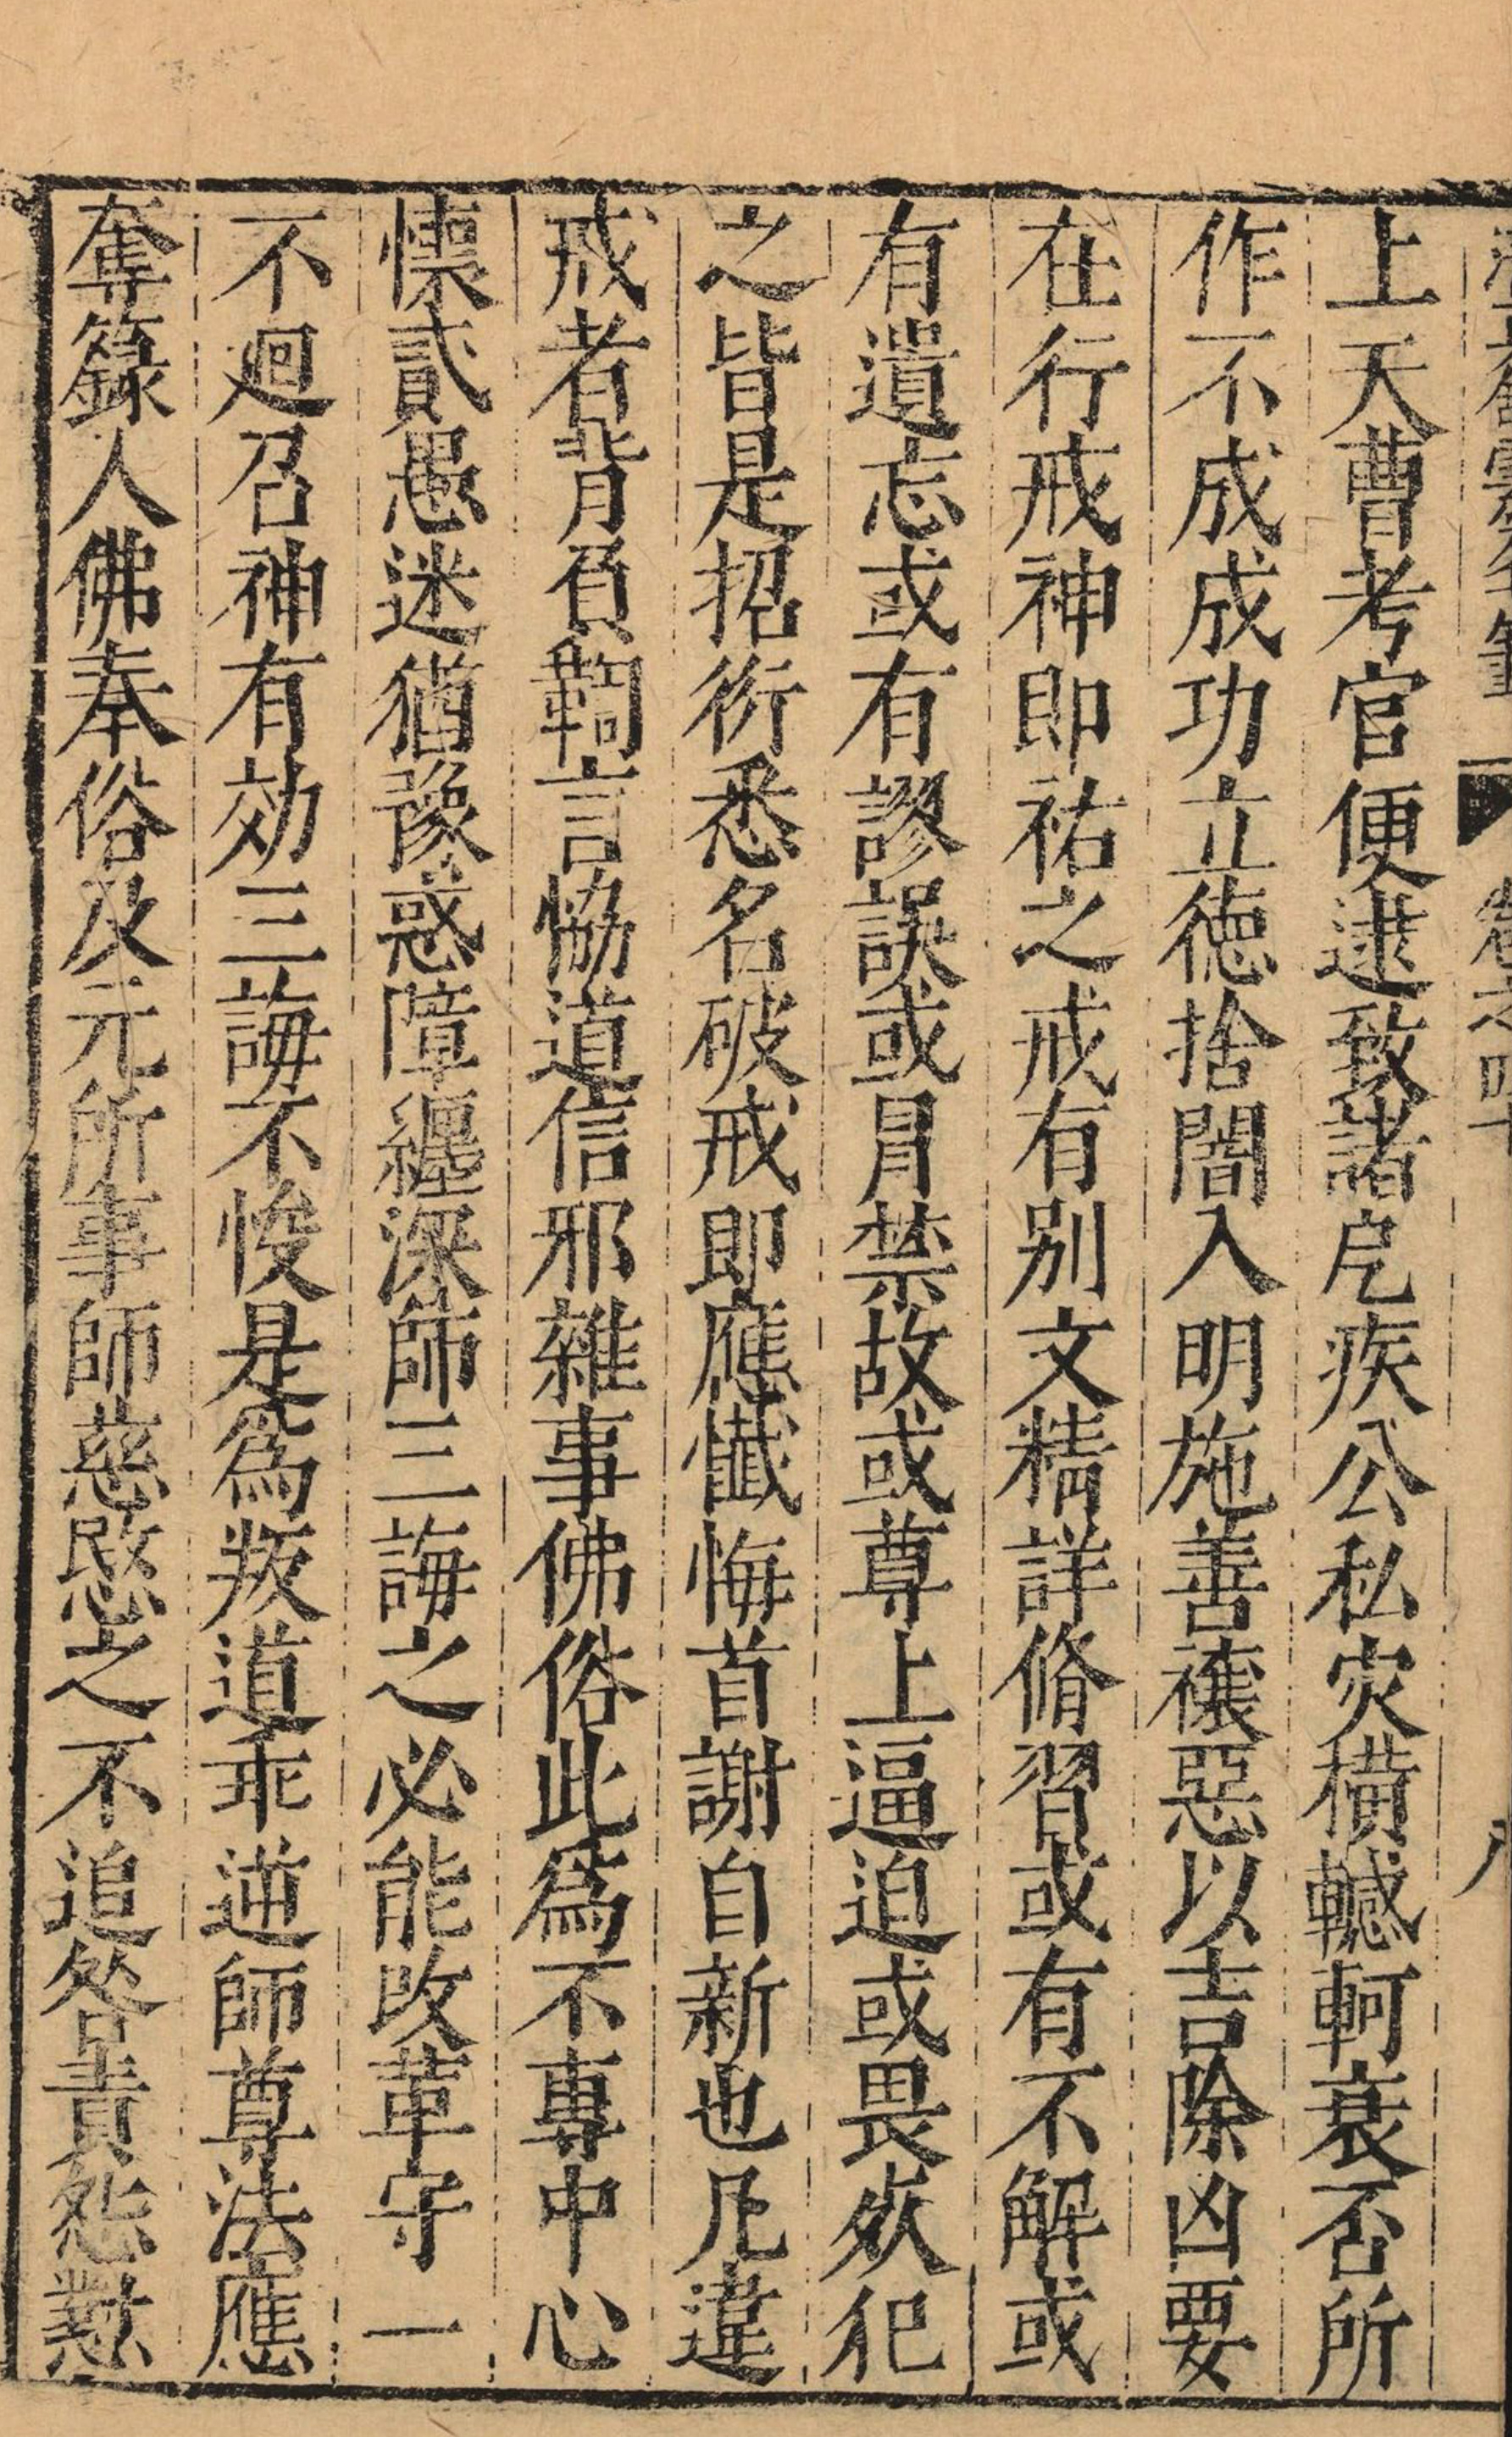 雲笈 卷之四十
上天曹考官便逮致諸厄疾公私灾橫轗軻衰否所
作不成成功立德捨闇入明施善禳惡以吉除凶要
在行戒神即祐之戒有别文精詳脩習或有不解或
有遺忘或有謬誤或冐禁故或尊上逼迫或畏死犯
之皆是招衍悉名破戒即應懺悔首謝自新也凡違
戒者背負鞫言恊道信邪雜事佛俗此爲不專中心
懷貳愚迷猶豫惑障纒深師三誨之必能改革守一
不廻召神有効三誨不悛是爲叛道乖逆師尊法應
奪籙人佛奉俗及元所事師慈愍之不追咎責怨懟